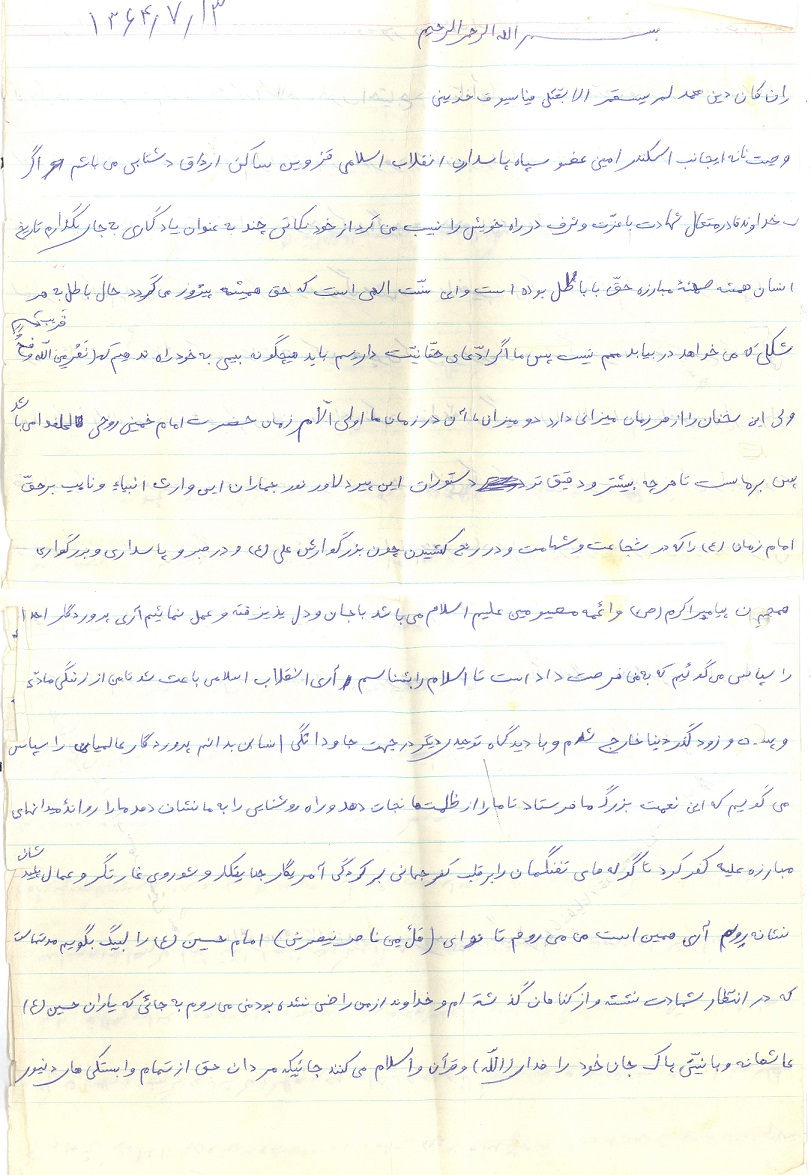 ۱۳۶۴/۷/۱۳
بسم الله الرحمن الرحیم
ان کان دین محمد لم یستقم الا بقتلی فیاسیوف خذینی
وصیت نامه اینجانب اسکندر امینی عضو سپاه پاسداران انقلاب اسلامی قزوین ساکن ارداق دشتابی می باشم اگر
خداوند قادر متعال شهادت با عزت و شرف در راه خویش را نصیب می کرد از خود نکاتی چند به عنوان یادگاری به جای بگذارم تاریخ
انسان همیشه صحنهٔ مبارزه حقّ با باطل بوده است و این سنّت الهی است که حق همیشه پیروز می گردد حال باطل به هر
شکلی که می خواهد در بیاید مهم نیست پس ما اگر ادّعای حقّانیّت داریم باید هیچگونه بیمی به خود راه ندهیم که (نَصْرٌ مِنَ اللّه وَ فَتحٌ قَریبٌ)
ولی این سخنان را از هر زمان میزانی دارد و میزان ما آن در زمان ما اولی الامر زمان حضرت امام خمینی روحی له الفدا می باشد
پس برماست تا هر چه بیشتر و دقیق تر دستورات این پیر دلاور نور جماران این وارث انبیاء و نایب بر حقّ
امام زمان (ع) را که در شجاعت و شهامت و در رنج کشیدن چون بزرگوارش علی (ع) و در صبر و پاسداری و بزرگواری
همچون پیامبر اکرم (ص) و ائمه معصومین علیم اسلام می باشد با جان و دل پذیرفته و عمل نمائیم آری پروردگار احد
را سپاس می گوئیم که به من فرصت داد است تا اسلام را بشناسم آری انقلاب اسلامی باعث شد تا من از زندگی مادّی
و پست و زود گذر دنیا خارج شدم و با دیدگاه توحیدی دیگر در جهت جاودانگی انسانی بدانم پروردگار عالمیان را سپاس
می گویم که این نعمت بزرگ ما فرستاد تا ما را از ظلمتها نجات دهد و راه روشنایی را به ما نشان دهد ما را روانهٔ میدانهای
مبارزه علیه کفر کرد تا گوله های تفنگمان را بر قلب کفر جهانی بر کردگی آمریکا جنایتکار و شوروی غارتگر و عمال پلیدشان
نشانه رویم آری همین است من می روم تا نوای (هَلْ مِنْ ناصر ینصرنی) امام حسین (ع) را لبیک بگویم مدتهاست
که در انتظار شهادت نشسته و از گناهان گذشته ام و خداوند از من راضی نشده بود من می روم به جائی که یاران حسین (ع)
عاشقانه و با نیّتی پاک جان خود را فدای (اللّه) و قرآن و اسلام می کنند جائیکه مردان حق از تمام وابستگی های دنیوی